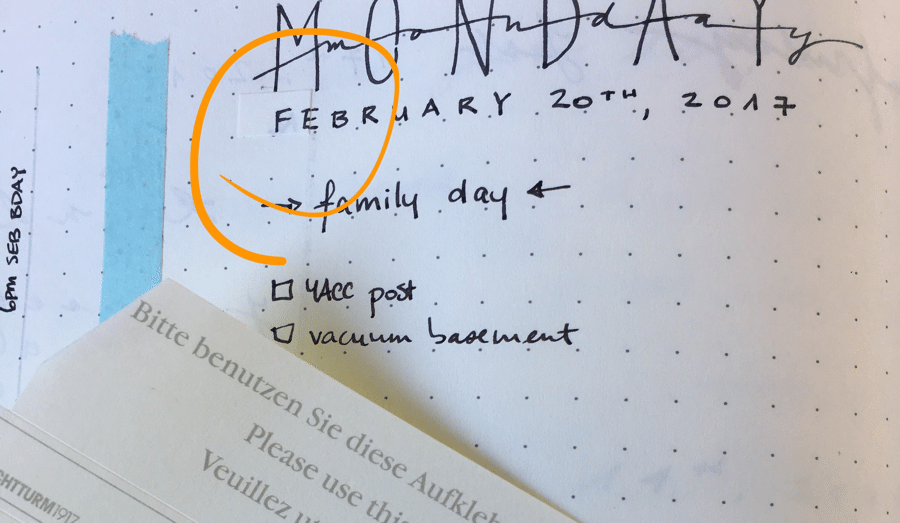 MmOoNnDdAaYy
FEBRUARY 20TH, 2017
→ family day ←
□ YACC post
□ vacuum basement
6pm SEB BDAY
Bitte benutzen Sie diese Aufkleb
Please use this
Veuillez ut
CHTTURM1917